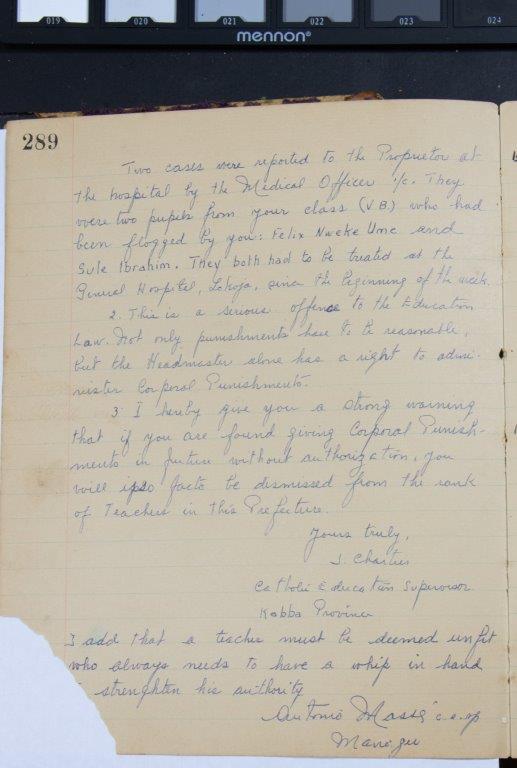 019 020 021 022 023 024
mennon®
289
Two cases were reported to the Proprietor at
the hospital by the Medical Officer i/c. They
were two pupils from your class (V.B.) who had
been flogged by you: Felix Nweke Ume and
Sule Ibrahim. They both had to be treated at the
General Hospital, Lokoja, since the beginning of the week.
2. This is a serious offence to the Education
Law. Not only punishments have to be reasonable,
but the Headmaster alone has a right to admi-
nister Corporal Punishments.
3 I hereby give you a strong warning
that if you are found giving Corporal Punish-
ments in future without authorization, you
will ipso facto be dismissed from the rank
of Teachers in this Prefecture.
Yours truly,
J. Chartier
Catholic Education Supervisor
Kabba Province
I add that a teacher must be deemed unfit
who always needs to have a whip in hand
strenghten his authority
Antonio Massé c.s.sp
Manager